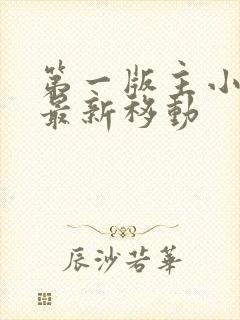 第一版主小
最新移动
辰沙若華